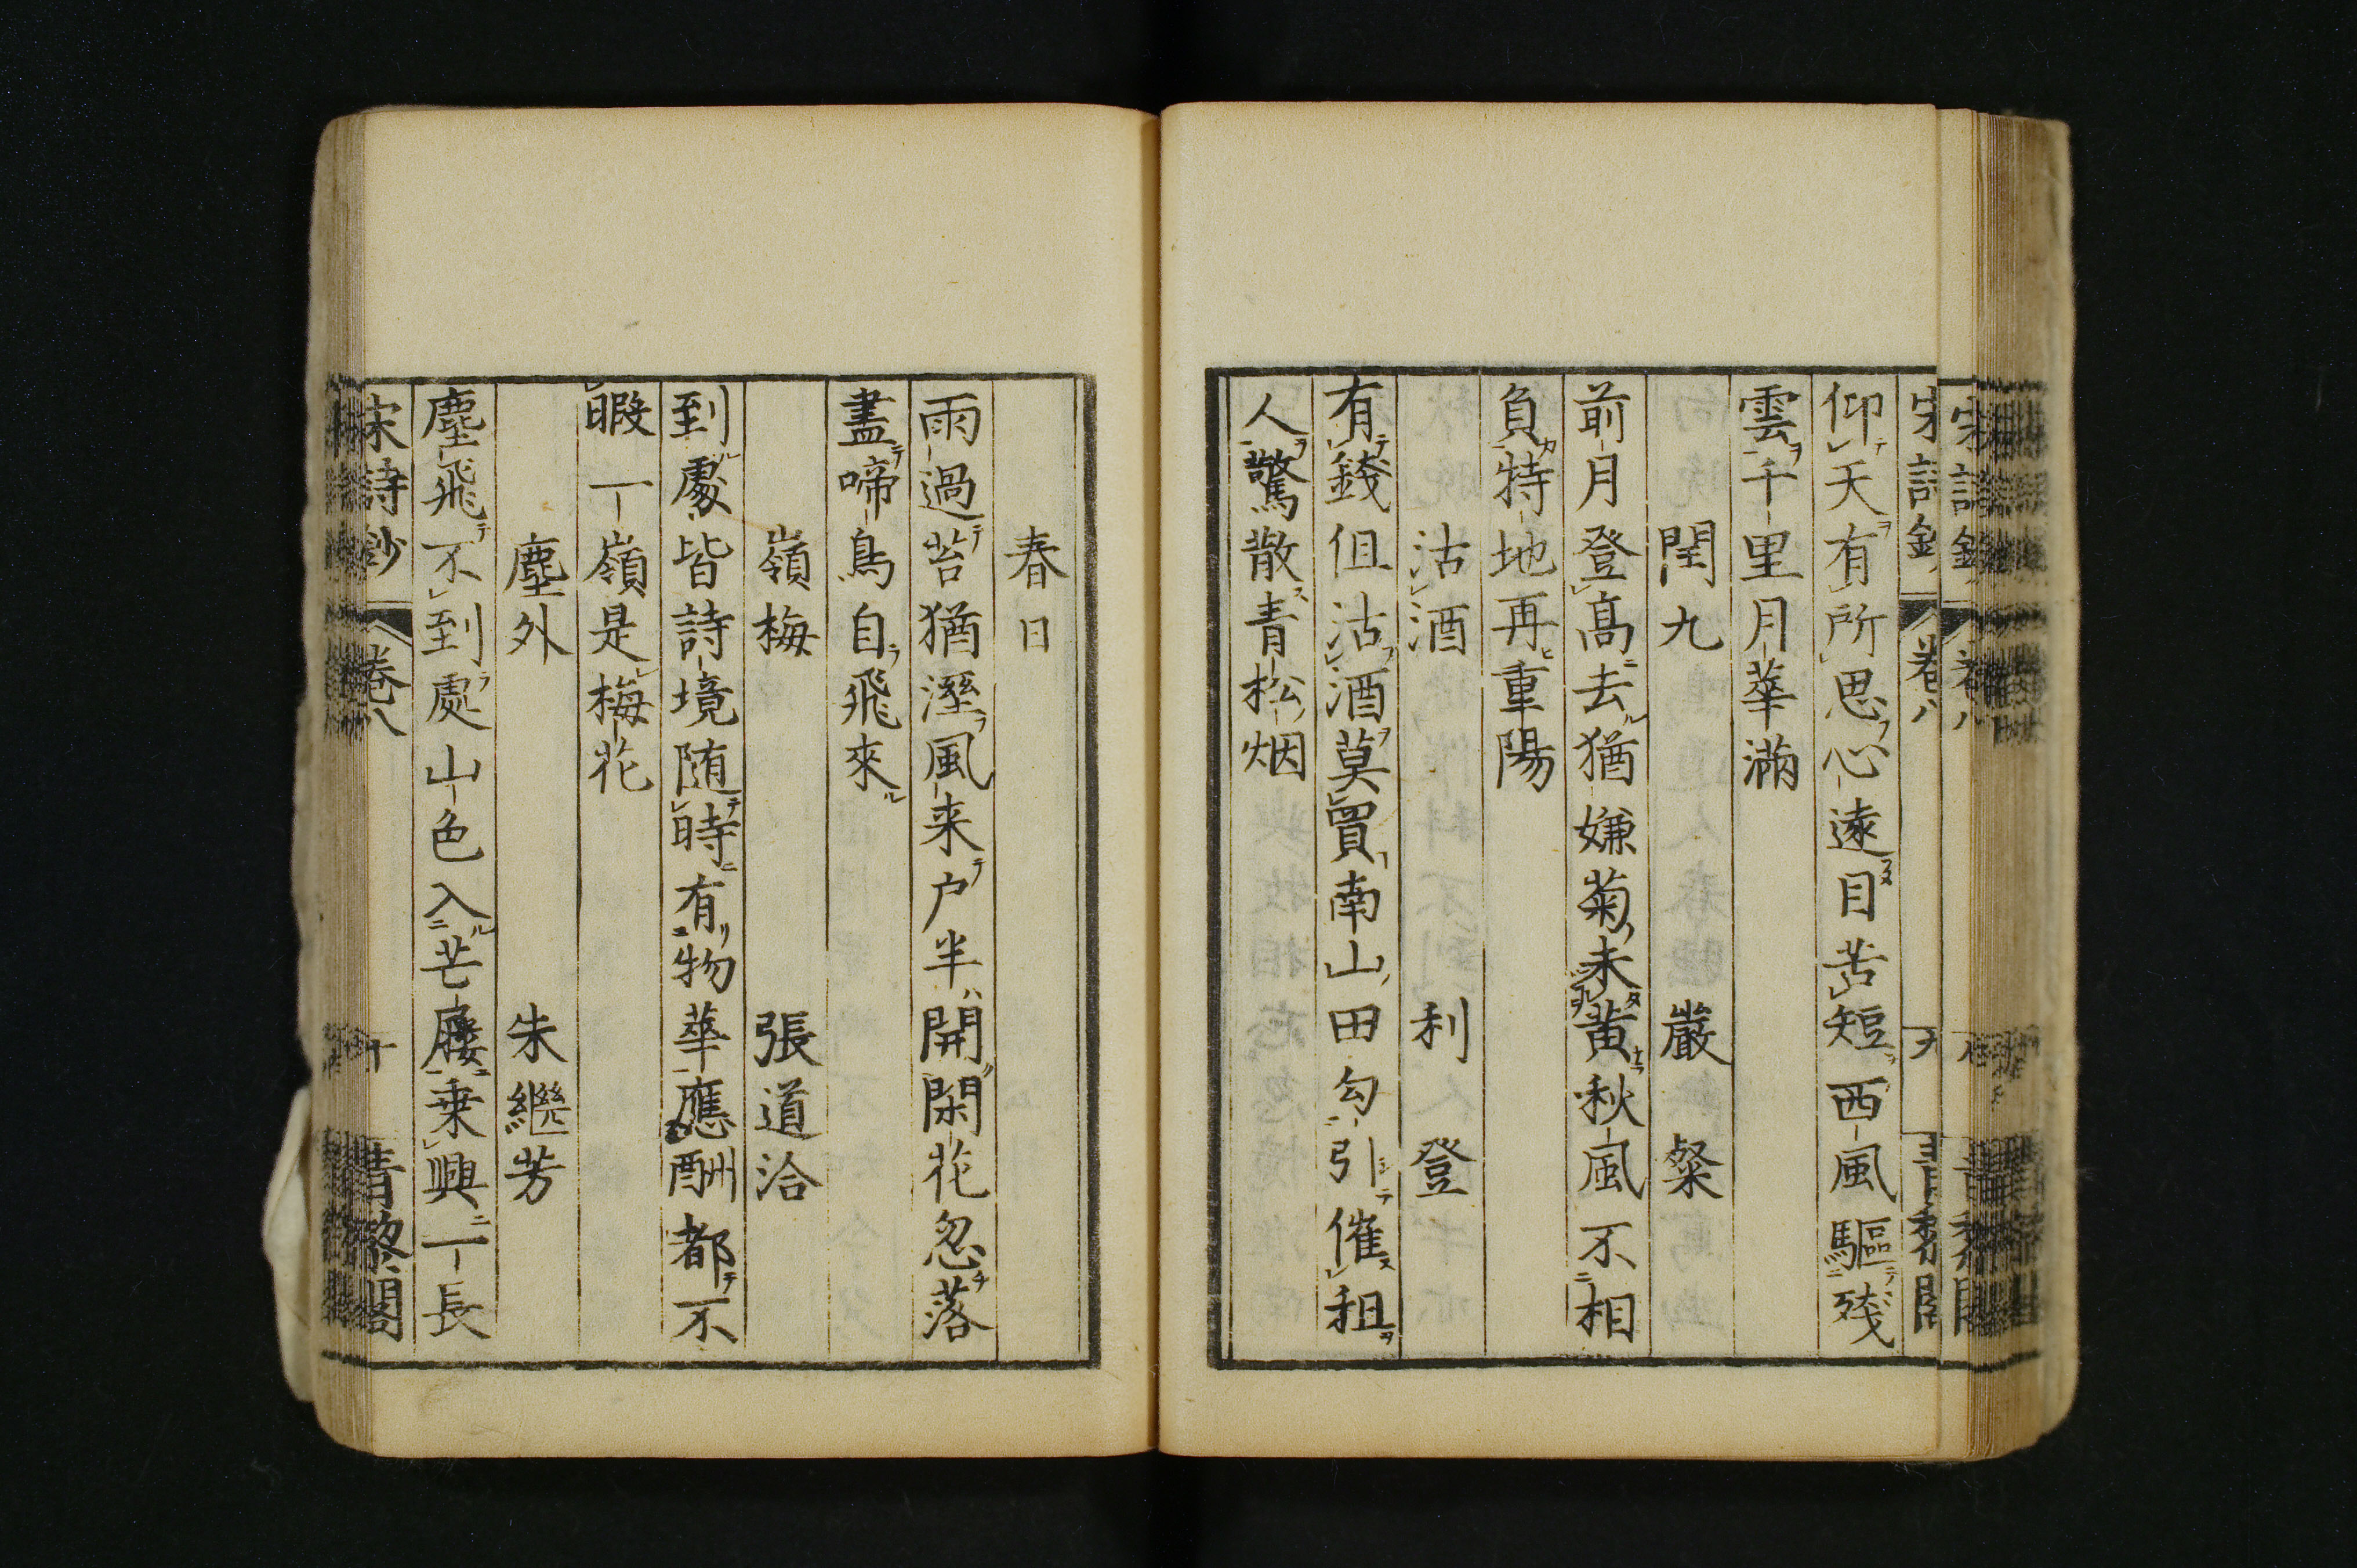 宋詩鈔 卷八 九 青藜閣
仰天有所思心遠目苦短西風驅殘
雲千里月華滿
閏九 嚴粲
前月登高去猶嫌菊未黄秋風不相
負特地再重陽
沽酒 利登
有錢但沽酒莫買南山田勾引催租
人驚散青松烟
春日
雨過苔猶溼風来户半開閑花忽落
盡啼鳥自飛來
嶺梅 張道洽
到處皆詩境随時有物華應酬都不
暇一嶺是梅花
塵外 朱繼芳
塵飛不到處山色入芒屨乗興一長
宋詩鈔 卷八 十 青藜閣